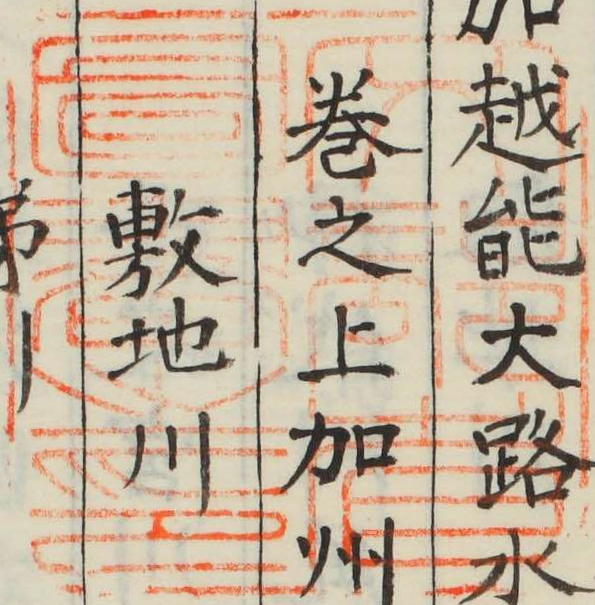 加越能大路水
巻之上加州
敷地川